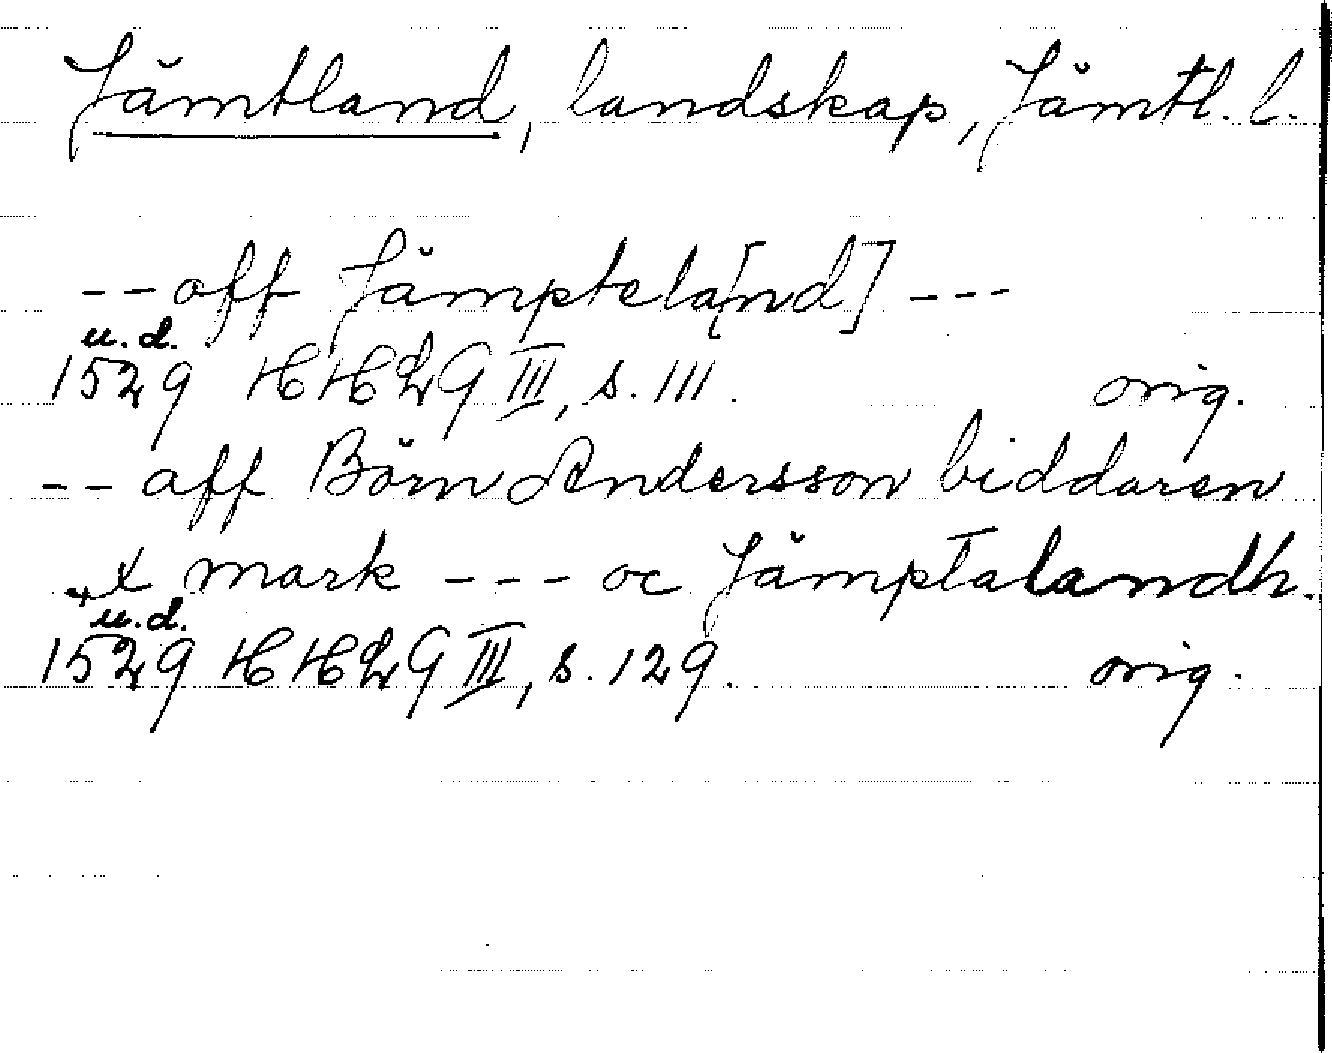 Jämtland, landskap, Jämtl. l.
-- aff Jämptela[nd] ---
u.d.
1529 HHLG III, s. 111. orig.
-- aff Börn Andersson biddaren
x mark --- oc Jämptalandh.
u.d.
1529 HHLG III, s. 129. orig.